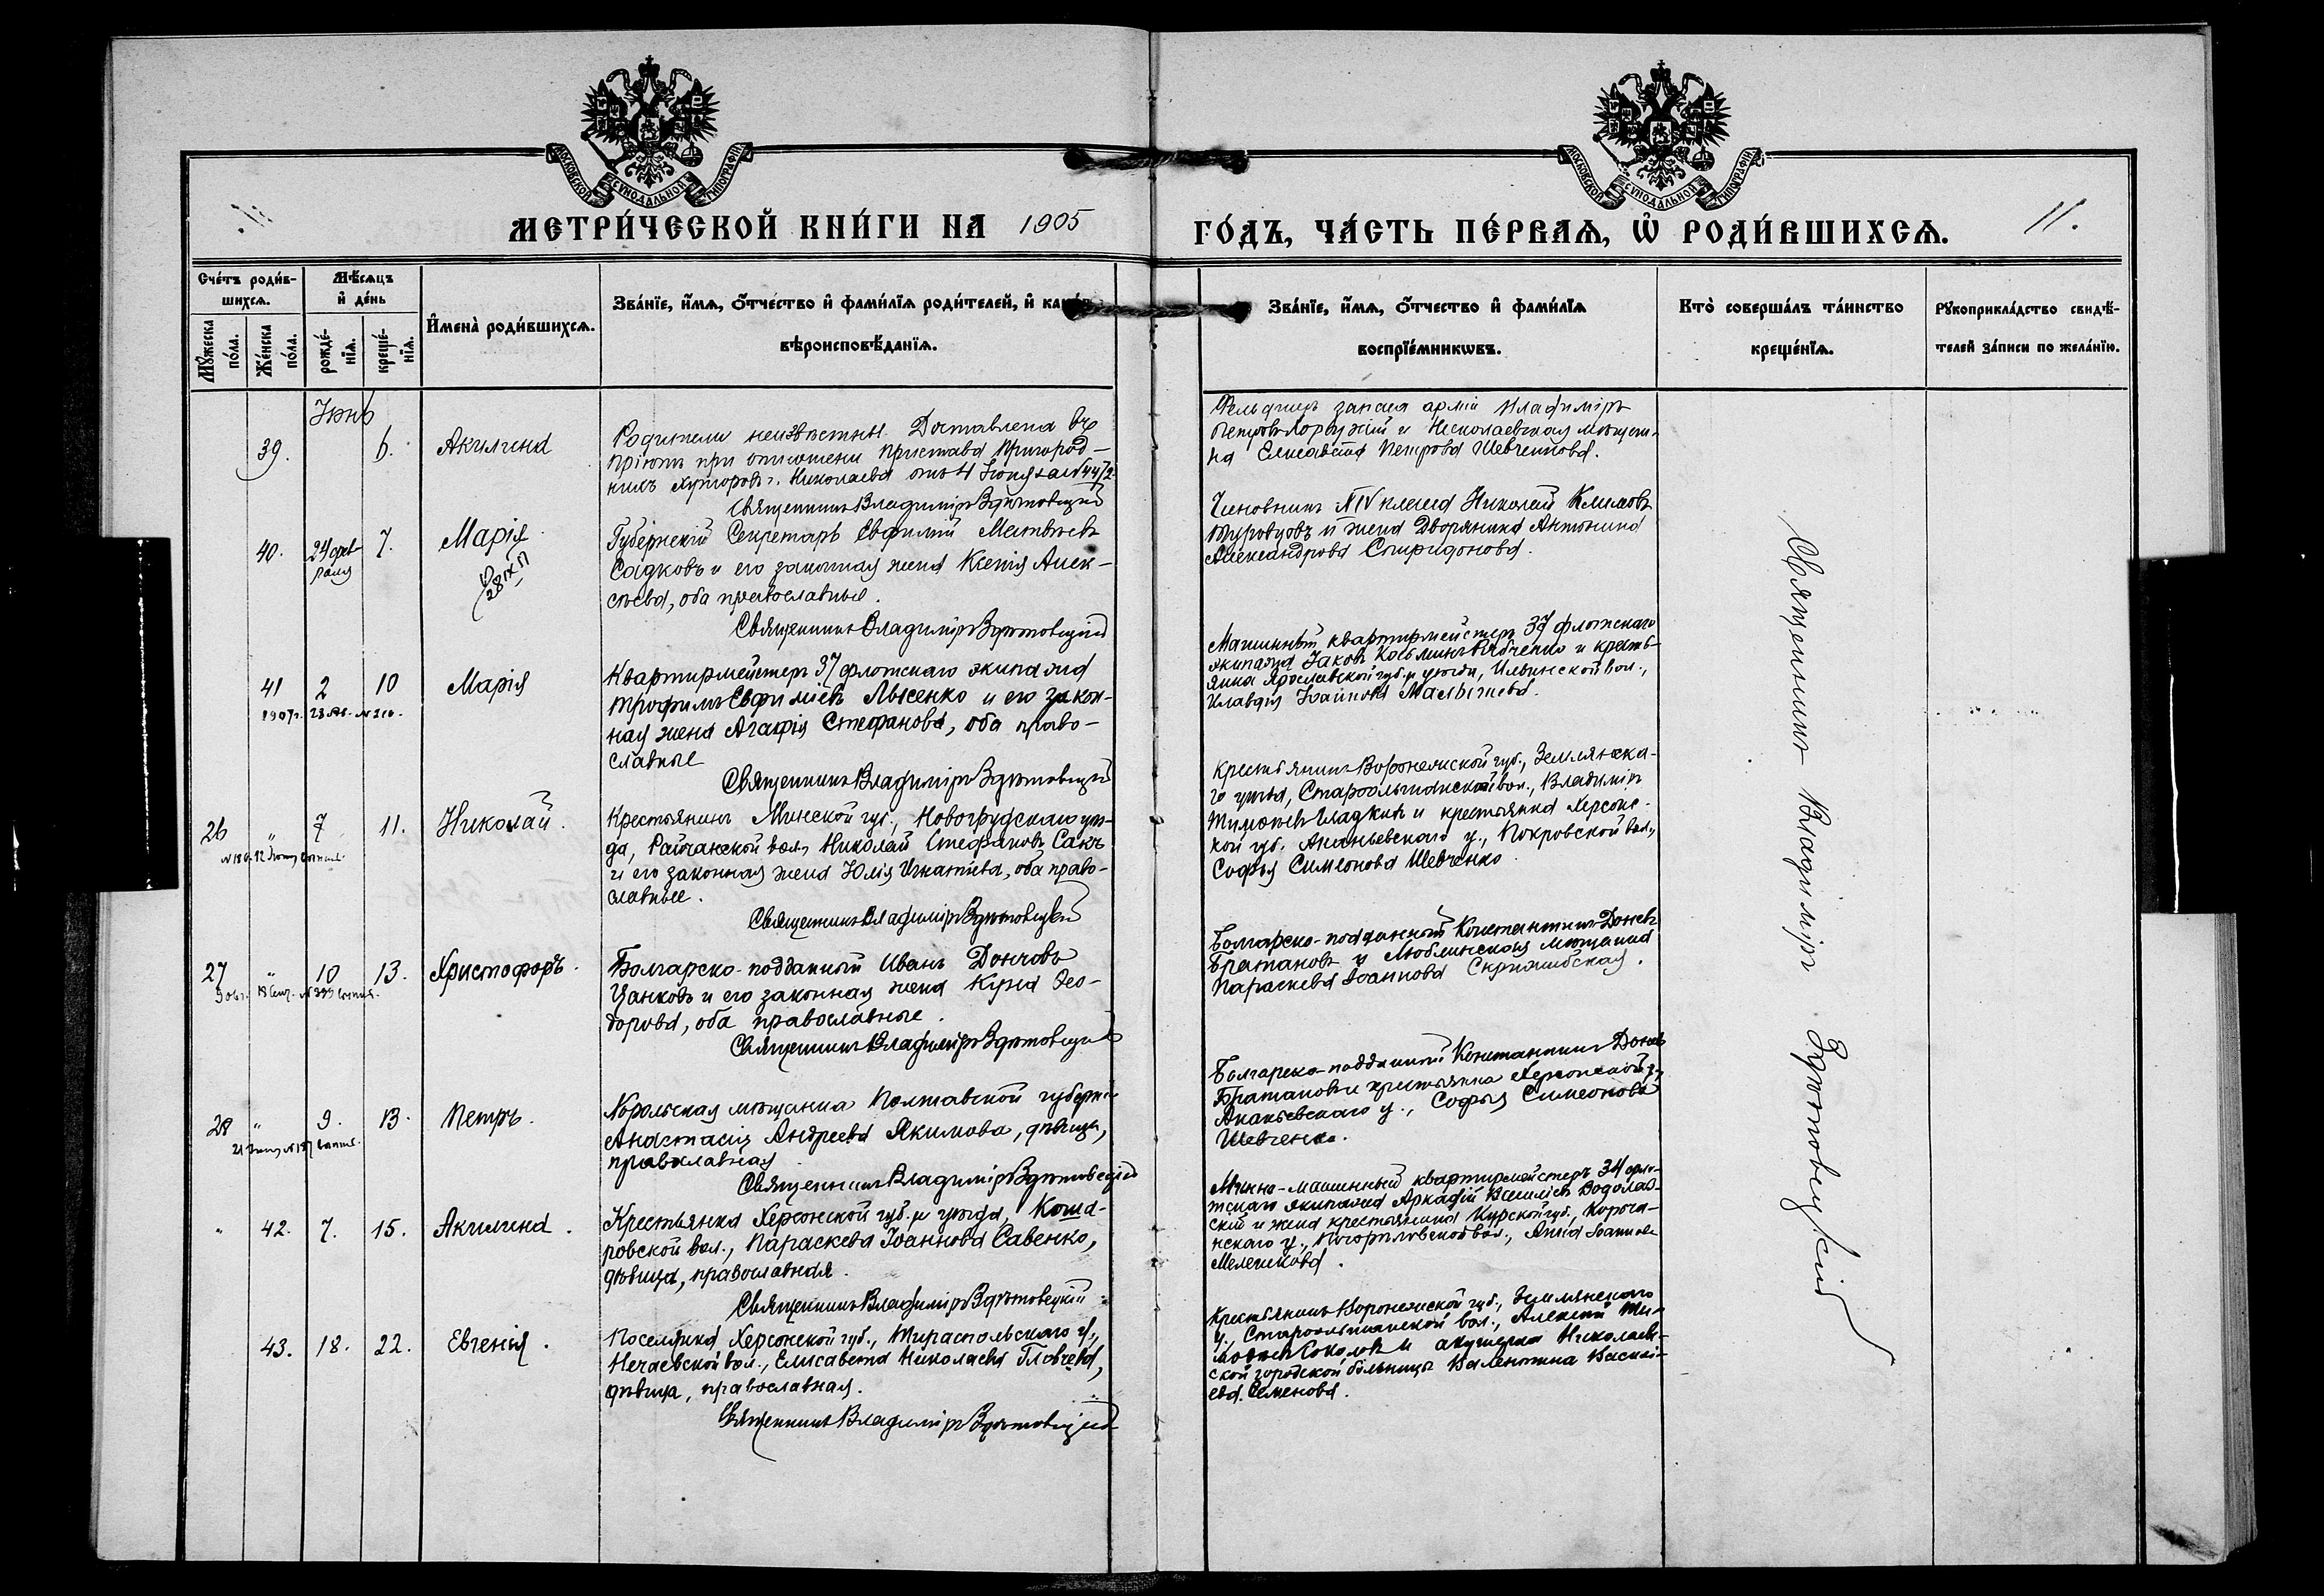 МОСКОВСКОЙ СѴНОДАЛЬНОЙ ТИПОГРАФІИ
МОСКОВСКОЙ СѴНОДАЛЬНОЙ ТИПОГРАФІИ
МЕТРИ́ЧЕСКОЙ КНИ́ГИ НА 1905
ГО́ДЪ, ЧА́СТЬ ПЕ́РВАѦ, Ѽ РОДИ́ВШИХСѦ.
11.
Сче́тъ роди́в-
шихсѧ.
Мꙋ́жеска
по́ла.
Же́нска
по́ла.
Мѣ́сѧцъ
и҆ де́нь
рожде́-
нїѧ.
креще́-
нїѧ.
И҆мена̀ роди́вшихсѧ.
Зва́нїе, и҆́мѧ, ѻ҆́тчество и҆ фами́лїѧ роди́телей, и҆ како́гѡ
вѣроисповѣ́данїѧ.
Зва́нїе, и҆́мѧ, ѻ҆́тчество и҆ фами́лїѧ
воспрїе́мникѡвъ.
Кто̀ соверша́лъ та́инство
креще́нїѧ.
Рꙋкоприкла́дство свидѣ́-
телей за́писи по жела́нїю.
Іюнь
39.
6.
Акилина
Родители неизвѣстны. Доставлена въ
пріютъ при отношеніи Пристава Пригород-
нихъ хуторовъ г. Николаева отъ 4 Іюня за № 4472
Священникъ Владиміръ Здѣтовецкій
Фельдшеръ запаса арміи Владиміръ
Петровъ и Николаевская мѣщан-
ка Елисавета Петрова Шевченкова.
40.
24 фев-
раля
7.
Марія
Губернскій Секретарь Евфимій Матвѣевъ
Садковъ и его законная жена Ксенія Алек-
сѣева, оба православные.
Священникъ Владиміръ Здѣтовецкій
Чиновникъ XIV класса Николай Климовъ
Туровцовъ и жена Дворянина Антонина
Александрова Спиридонова.
41
2
10
Марія
1907г. 28 Ав. № 210.
Квартирмейстеръ 37 флотскаго экипажа
Трофимъ Евфиміевъ Лысенко и его закон-
ная жена Агафія Стефанова, оба право-
славные
Священникъ Владиміръ Здѣтовецкій
Машинный квартирмейстеръ 37 флотскаго
экипажа Іаковъ Косьминъ Рябченко и кресть-
янка Ярославской губ. и уѣзда, Ильинской вол.,
Клавдія Іоаннова Малышева.
26
"
7
11.
Николай.
Крестьянинъ Минской губ., Новогрудскаго уѣз-
да, Райчанской вол., Николай Стефановъ Сакъ
и его законная жена Юлія Игнатьева, оба право-
славные.
Священникъ Владиміръ Здѣтовецкій
Крестьянинъ Воронежской губ., Землянска-
го уѣзда, Староольшанской вол., Владиміръ
Тимоѳеевъ Гладкихъ и крестьянка Херсонс-
кой губ. Ананьевскаго у., Покровской вол.,
Софья Симеонова Шевченко.
27
"
10
13.
Христофоръ.
Болгарско-подданный Иванъ Дончовъ
Цанковъ и его законная жена Куна Ѳео-
дорова, оба православные.
Священникъ Владиміръ Здѣтовецкій
Болгарско-подданный Константинъ Доневъ
Братановъ и Люблинская мѣщанка
Параскева Іоаннова Скржибская.
28
"
9.
13.
Петръ.
Хорольская мѣщанка Полтавской губерніи
Анастасія Андреева Якимова, дѣвица,
православная
Священникъ Владиміръ Здѣтовецкій
Болгарско-подданный Константинъ Доневъ
Братановъ и крестьянка Херсонской г.,
Ананьевскаго у., Софья Симеонова
Шевченко.
"
42.
7.
15.
Акилина.
Крестьянка Херсонской губ. и уѣзда, Коша-
ровской вол., Параскева Іоаннова Савенко,
дѣвица, православная.
Священникъ Владиміръ Здѣтовецкій
Минно-машинный квартирмейстеръ 34 фло-
тскаго экипажа Аркадій Василіевъ Водолаз-
скій и жена крестьянина Курской губ., Короча-
нскаго у., вол., Анна Іоаннова
Мелешкова.
43.
18.
22.
Евгенія.
Поселянка Херсонской губ., Тираспольскаго у.,
Нечаевской вол., Елисавета Николаева Говчева,
дѣвица, православная.
Священникъ Владиміръ Здѣтовецкій
Крестьянинъ Воронежской губ., Землянскаго
у., Староольшанской вол., Алексѣй Ти-
моѳеевъ Соколовъ и акушерка Николаев-
ской городской больницы Валентина Васили-
ева Семенова.
Священникъ Владиміръ Здѣтовецкій